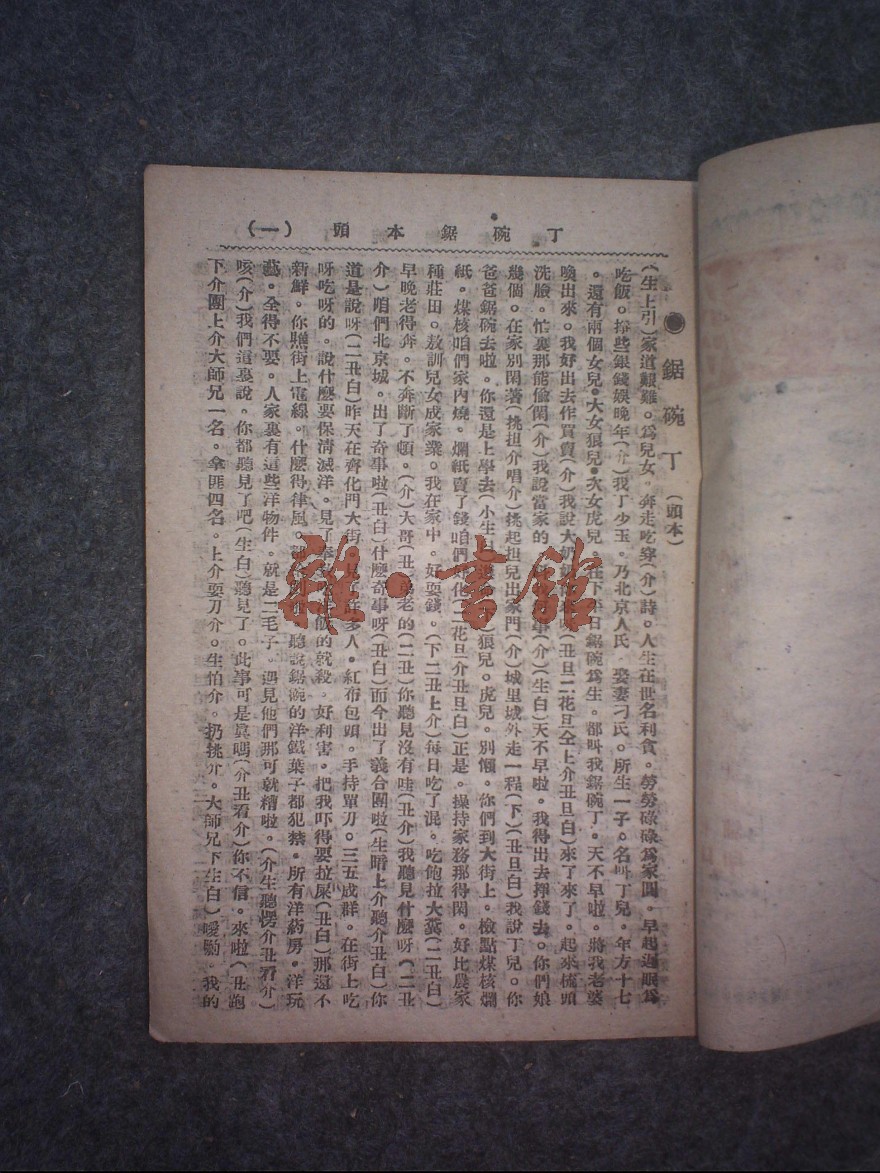 丁碗鋸本頭（一）
●鋸碗丁（頭本）
（生上引）家道艱難。爲兒女。奔走吃穿（介）詩。人生在世名利貪。勞勞碌碌爲家園。早起遲眠爲
吃飯。掙些銀錢娛晚年（介）我丁少玉。乃北京人氏。娶妻刁氏。所生一子。名叫丁兒。年方十七
。還有兩個女兒。大女狼兒。次女虎兒。在下平日鋸碗爲生。都叫我鋸碗丁。天不早啦。將我老婆
喚出來。我好出去作買賣（介）我說大奶奶 來呀（丑旦二花旦仝上介丑旦白）來了來了。起來梳頭
洗臉。忙裏那能偷閑（介）我說當家的 事（介）（生白）天不早啦。我得出去掙錢去。你們娘
幾個。在家別閑著（挑担介唱介）挑起担兒出家門（介）城里城外走一程（下）（丑旦白）我說丁兒。你
爸爸鋸碗去啦。你還是上學去（小生 狼兒。虎兒。別懶。你們到大街上。檢點煤核爛
紙。煤核咱們家內燒。爛紙賣了錢咱們好化（二花旦介丑旦白）正是。操持家務那得閑。好比農家
種莊田。教訓兒女成家業。我在家中。好耍錢。（下二丑上介）每日吃了混。吃飽拉大糞（二丑白）
早晚老得奔。不奔斷了頓。（介）大哥（丑 老的（二丑）你聽見沒有哇（丑介）我聽見什麼呀（二丑
介）咱們北京城。出了奇事啦（丑白）什麼奇事呀（丑白）而今出了義合團啦（生暗上介聽介丑白）你
道是說呀（二丑白）昨天在齊化門大街。見 許多人。紅布包頭。手持單刀。三五成群。在街上吃
呀吃呀的。說什麼要保清滅洋。見了奉 飯的就殺。好利害。把我吓得要拉屎（丑白）那還不
新鮮。你瞧街上電線。什麼得律風。 聽說鋸碗的洋鐵葉子都犯禁。所有洋葯房。洋玩
藝。全得不要。人家裏有這些洋物件。就是二毛子。遇見他們那可就糟啦。（介生聽愣介丑看介）
咳（介）我們這裏說。你都聽見了吧（生白）聽見了。此事可是眞嗎（介丑看介）你不信。來啦（丑跑
下介團上介大師兄一名。拿匪四名。上介耍刀介。生怕介。扔挑介。大師兄下生白）噯喲。我的
雜·書館